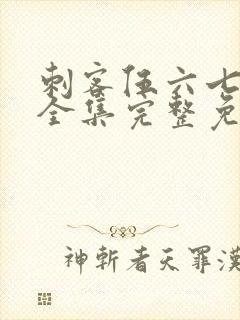 刺客伍六七
全集完整免
神斬者天罪漢